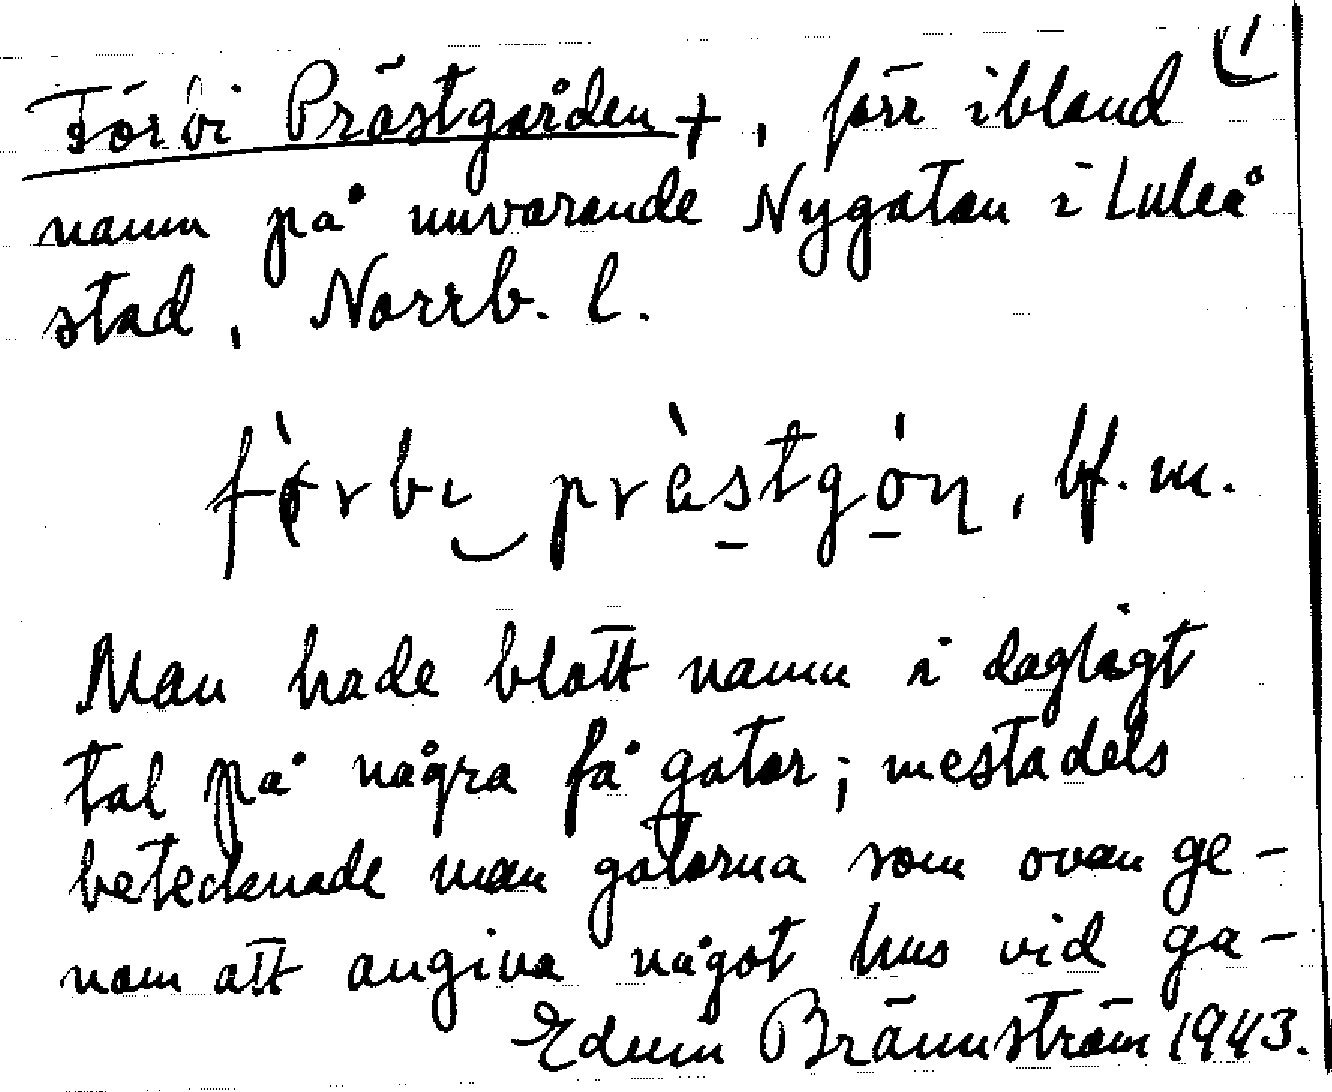 Förbi Prästgården +, förr ibland (1
namn på nuvarande Nygatan i Luleå
stad, Norrb. l.
fò̀rbı prὲstgón, bf. m.
Man hade blott namn i dagligt
tal på några få gator; mestadels
betecknade man gatorna som ovan ge-
nom att angiva något hus vid ga-
Edvin Brännström 1943.